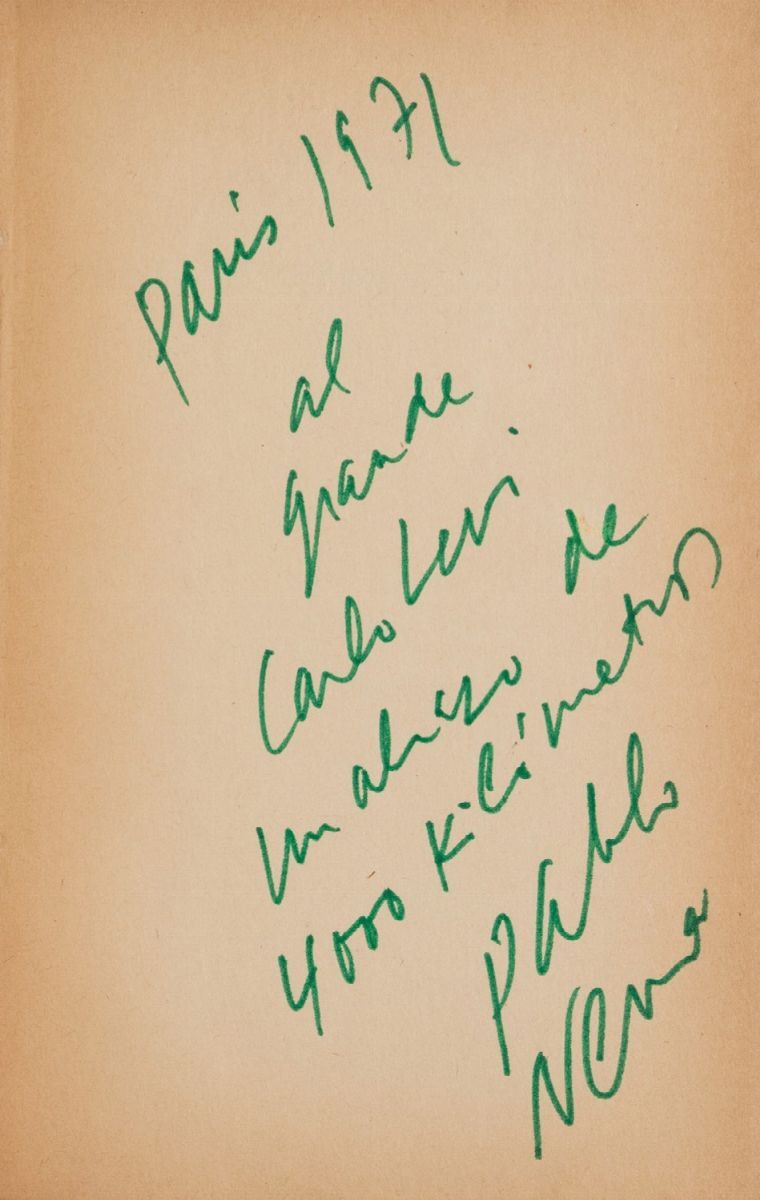 Paris 1971
al
grande
Carlo Levi
un abrazo de
4000 kilómetros
Pablo
Neruda